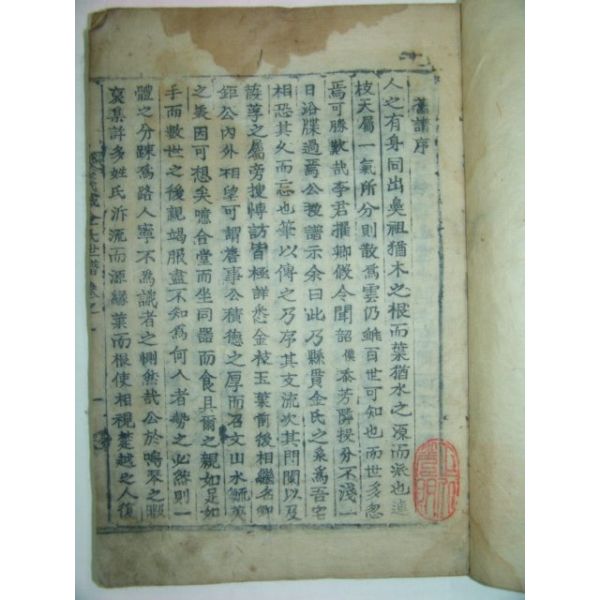 舊譜序
人之有身同出奧祖猶木之根而葉猶水之源而派也連
枝天屬一氣所分則散爲雲仍雖百世可知也而世多忽
焉可勝歎哉李君擢卿假令聞韶僕忝芳隣授分不淺一
日浴牒過焉公敎譜示余曰此乃縣貴金氏之系爲吾宅
相恐其久而忘也筆以傳之乃序其支流次其門閥以及
葭莩之屬旁搜博訪皆極詳悉金枝玉葉前後相繼名卿
鉅公內外相望可謂奮事公積德之厚而召文山水毓英
之美因可想矣噫合堂而坐同器而食且爾之親如足如
手而數世之後親竭服盡不知爲何人者勢之必然則一
體之分踈爲路人寧不爲識者之惻然哉公於鳴琴之暇
裒集許多姓氏泝流而源緣葉而根使相視楚越之人復
氏世譜卷之一